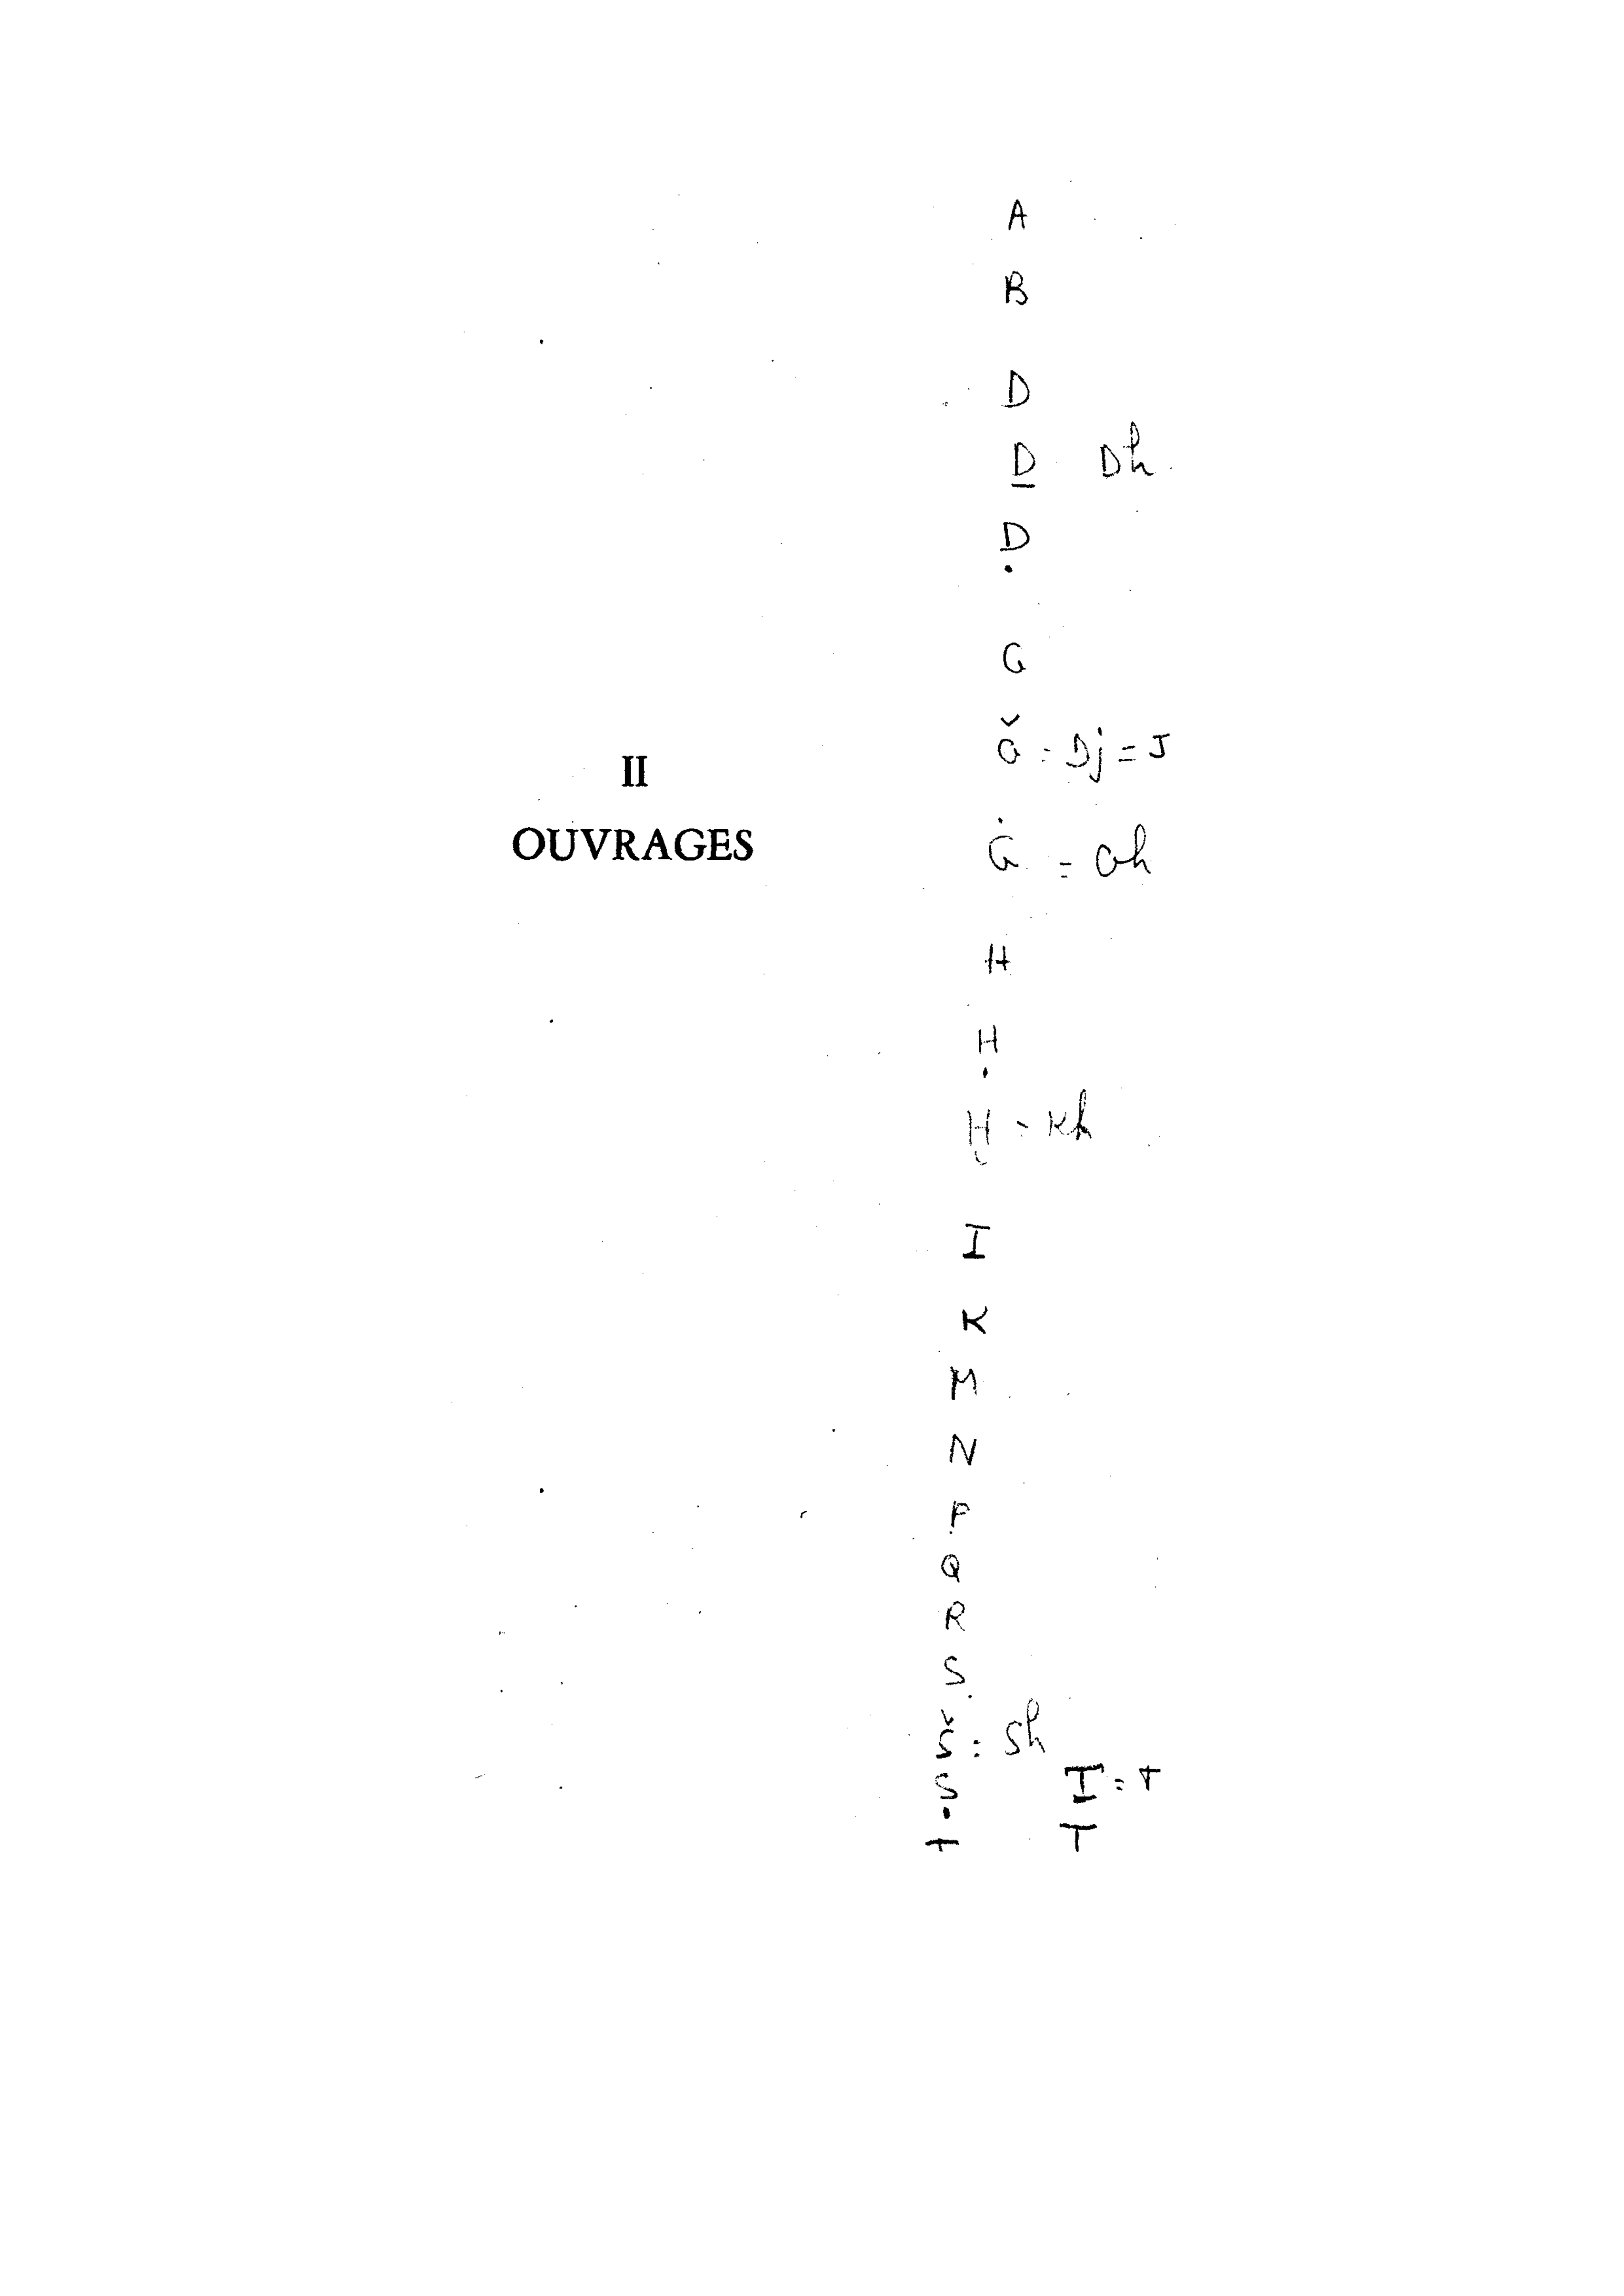 II
OUVRAGES
A
B
D
Ḏ Dh
Ḍ
G
Ǧ = Dj = J
Ġ = Gh
H
Ḥ
Ḫ = Kh
I
K
M
N
P
Q
R
S
Š = Sh
Ṣ Ṯ = T
T T